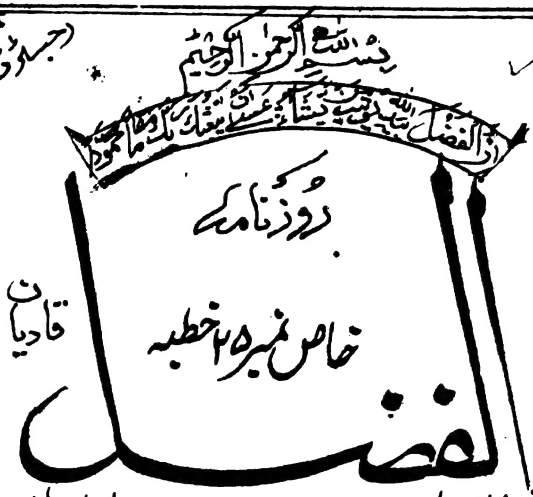 بسم اللہ الرحمن الرحیم
ان الفضل بید اللہ یؤتیہ من یشاء عسیٰ ان یبعثک ربک مقاما محمودا
روزنامہ
قادیان
خاص نمبر ۲۵ خطبہ
الفضل